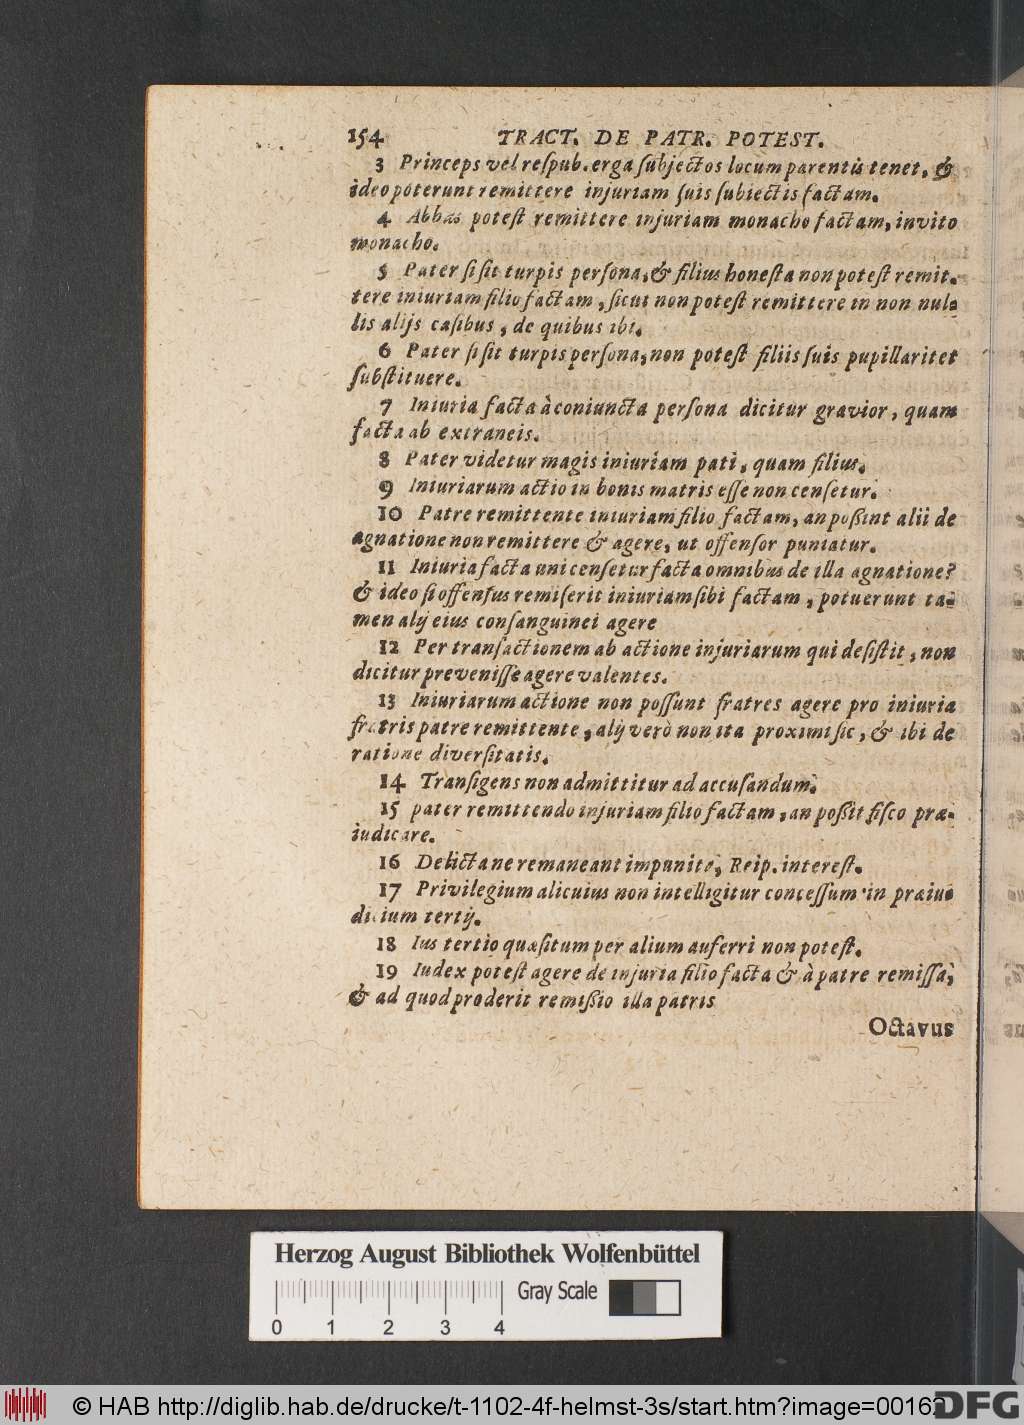 154 TRACT. DE PATR. POTEST.
3 Princeps vel reſpub. erga ſubjectos locum parentis tenet, &
ideo poterunt remittere injuriam ſuis ſubiectis factam.
4 Abbas poteſt remittere injuriam monacho factam, invito
monacho.
5 Pater ſi ſit turpis perſona, & filius honeſta non poteſt remit-
tere iniuriam filio factam, ſicut non poteſt remittere in non nul-
lis alijs caſibus, de quibus ibi.
6 Pater ſi ſit turpis perſona, non poteſt filiis ſuis pupillaritet
ſubſtituere.
7 Iniuria facta à coniuncta perſona dicitur gravior, quam
facta ab extraneis.
8 Pater videtur magis iniuriam pati, quam filius.
9 Iniuriarum actio in bonis matris eſſe non cenſetur.
10 Patre remittente iniuriam filio factam, an poßint alii de
agnatione non remittere & agere, ut offenſor puniatur.
11 Iniuria facta uni cenſetur facta omnibus de illa agnatione?
& ideo ſi offenſus remiſerit iniuriam ſibi factam, potuerunt ta-
men alij eius conſanguinei agere
12 Per tranſactionem ab actione injuriarum qui deſiſtit, non
dicitur preveniſſe agere valentes.
13 Iniuriarum actione non poſſunt fratres agere pro iniuria
fratris patre remittente, alij verò non ita proximi ſic, & ibi de
ratione diverſitatis.
14 Tranſigens non admittitur ad accuſandum.
15 pater remittendo injuriam filio factam, an poßit fiſco præ-
iudicare.
16 Delicta ne remaneant impunita, Reip. intereſt.
17 Privilegium alicuius non intelligitur conceſſum in præiu-
dicium tertij.
18 Ius tertio quæſitum per alium auferri non poteſt.
19 Iudex poteſt agere de injuria filio facta & à patre remiſſa,
& ad quod proderit remißio illa patris
Octavus
Herzog August Bibliothek Wolfenbüttel
Gray Scale
0 1 2 3 4
© HAB http://diglib.hab.de/drucke/t-1102-4f-helmst-3s/start.htm?image=00162
DFG